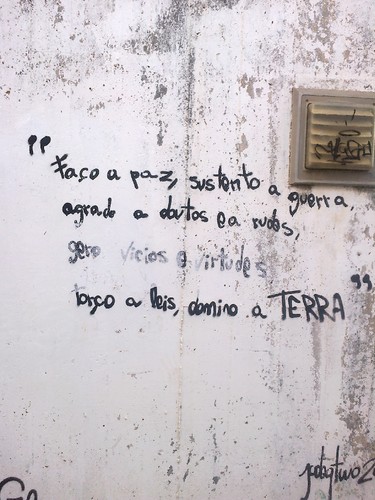 "faço a paz, sustento a guerra,
agrado a doutos e a rudes,
gero vícios e virtudes
torço a leis, domino a TERRA"